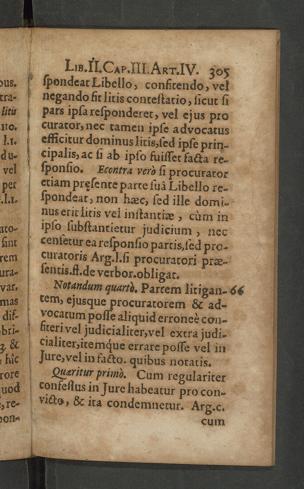 LIB.II.CAP.III.ART.IV. 305
spondeat Libello, confitendo, vel
negando fit litis contestatio, sicut si
pars ipsa responderet, vel ejus pro
curator, nec tamen ipse advocatus
efficitur dominus litis, sed ipse prin-
cipalis, ac si ab ipso fuisset facta re-
sponsio. Econtra verò si procurator
etiam præsente parte suâ Libello re-
spondeat, non hæc, sed ille domi-
nus erit litis vel instantiæ, cùm in
ipso substantietur judicium, nec
censetur ea responsio partis, sed pro-
curatoris Arg.l.si procuratori præ-
sentis.ff.de verbor.obligat.
Notandum quartò. Partem litigan- 66
tem, ejusque procuratorem & ad-
vocatum posse aliquid erroneè con-
fiteri vel judicialiter, vel extra judi-
cialiter, itemque errare posse vel in
Jure, vel in facto. quibus notatis.
Quæritur primò. Cum regulariter
confessus in Jure habeatur pro con-
victo, & ita condemnetur. Arg.c.
cum